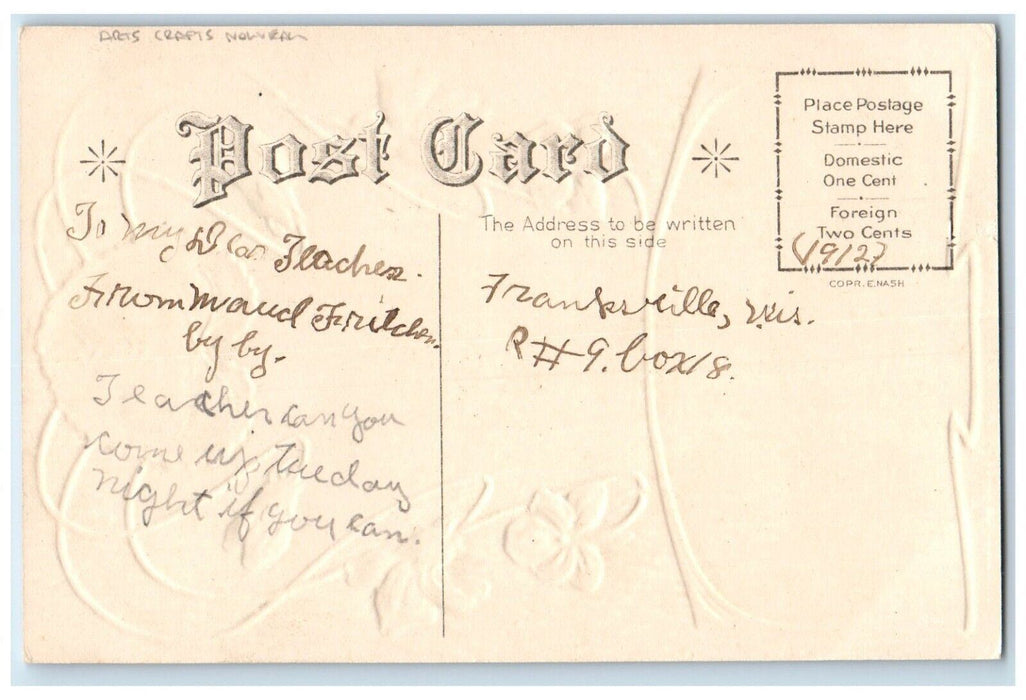 ARTS CRAFTS NOUVEAU
Post Card
Place Postage
Stamp Here
Domestic
One Cent
Foreign
Two Cents
(1912)
COPR. E. NASH
The Address to be written
on this side
To my Dear Teacher.
From Maud Fritchen.
by by.
Teacher can you
come up Tueday
night if you can.
Franksville, Wis.
R#9. box 18.